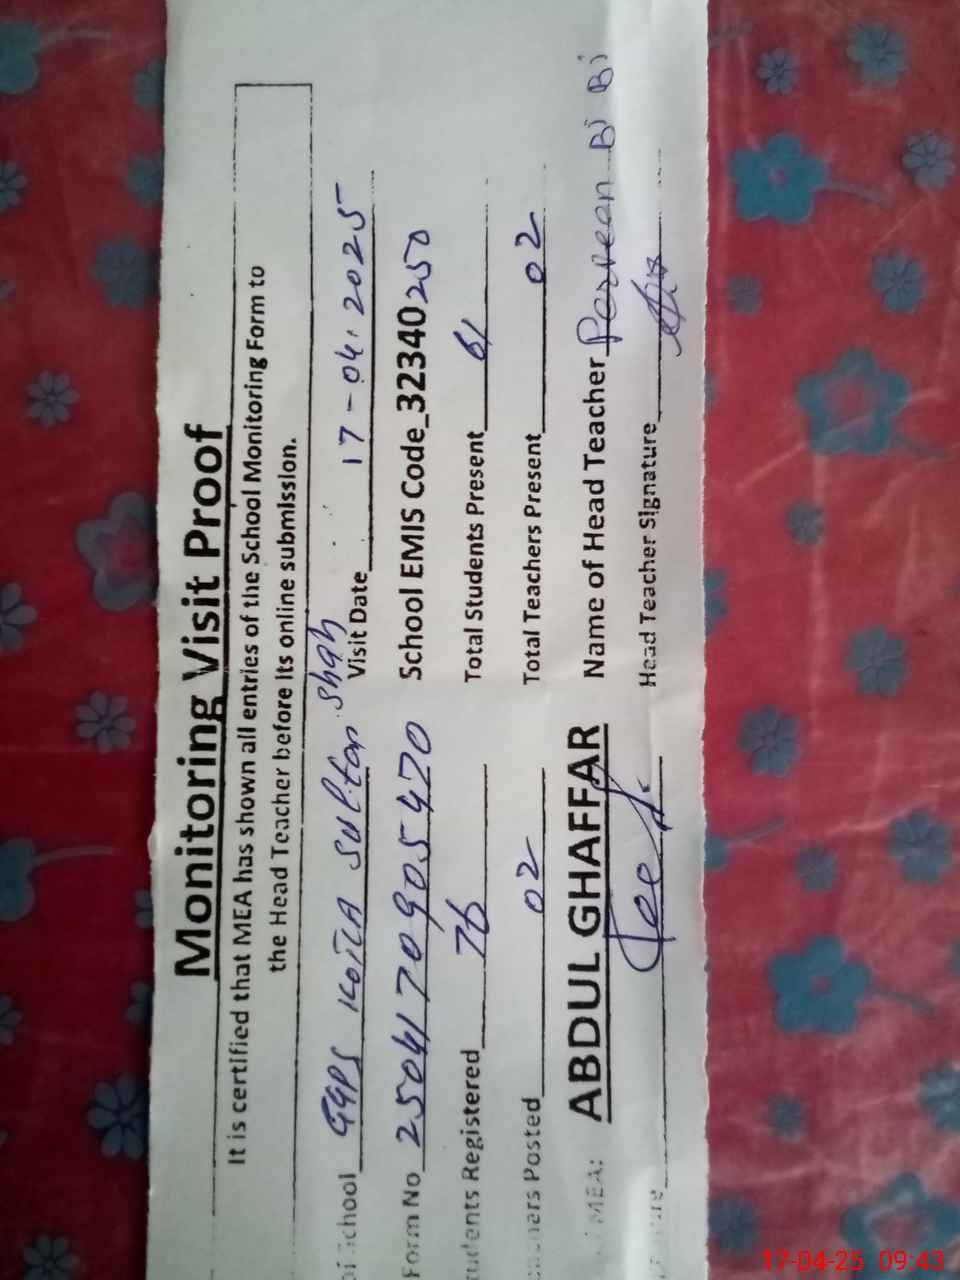 Monitoring Visit Proof
It is certified that MEA has shown all entries of the School Monitoring Form to
the Head Teacher before its online submission.
School GGPS KOTLA Sultan Shah Visit Date 17-04.2025
Form No 2504170905420 School EMIS Code_32340250
Students Registered 76 Total Students Present 61
Posted 02 Total Teachers Present 02
MEA: ABDUL GHAFFAR Name of Head Teacher Perveen Bi Bi
Head Teacher Signature
17-04-25 09:43